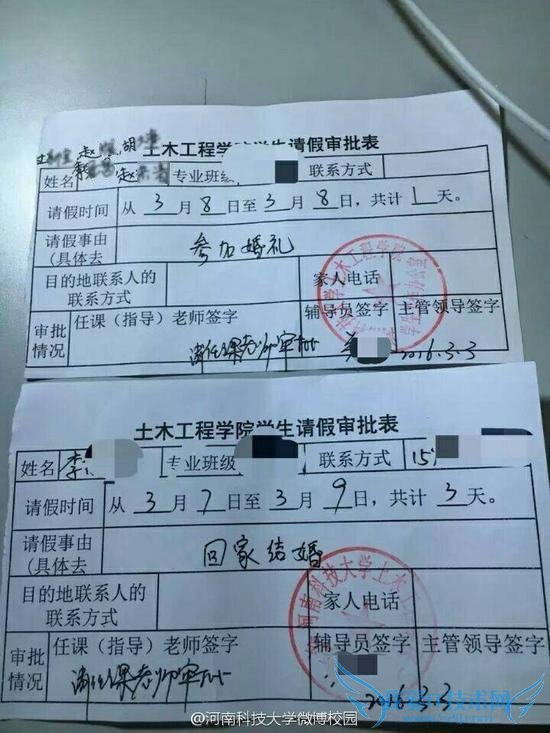 赵 胡
土木工程学院学生请假审批表
姓名 赵 专业班级 联系方式
请假时间 从 3 月 8 日至 3 月 8 日，共计 1 天。
请假事由
(具体去
参加婚礼
目的地联系人的
联系方式
家人电话
审批
情况
任课（指导）老师签字 辅导员签字 主管领导签字
请任课老师审批
2016.3.3
土木工程学院学生请假审批表
姓名 李 专业班级 联系方式 15
请假时间 从 3 月 7 日至 3 月 9 日，共计 3 天。
请假事由
(具体去
回家结婚
目的地联系人的
联系方式
家人电话
河南科技大学土木工
审批
情况
任课（指导）老师签字 辅导员签字 主管领导签字
请任课老师审批
2016.3.3
@河南科技大学微博校园